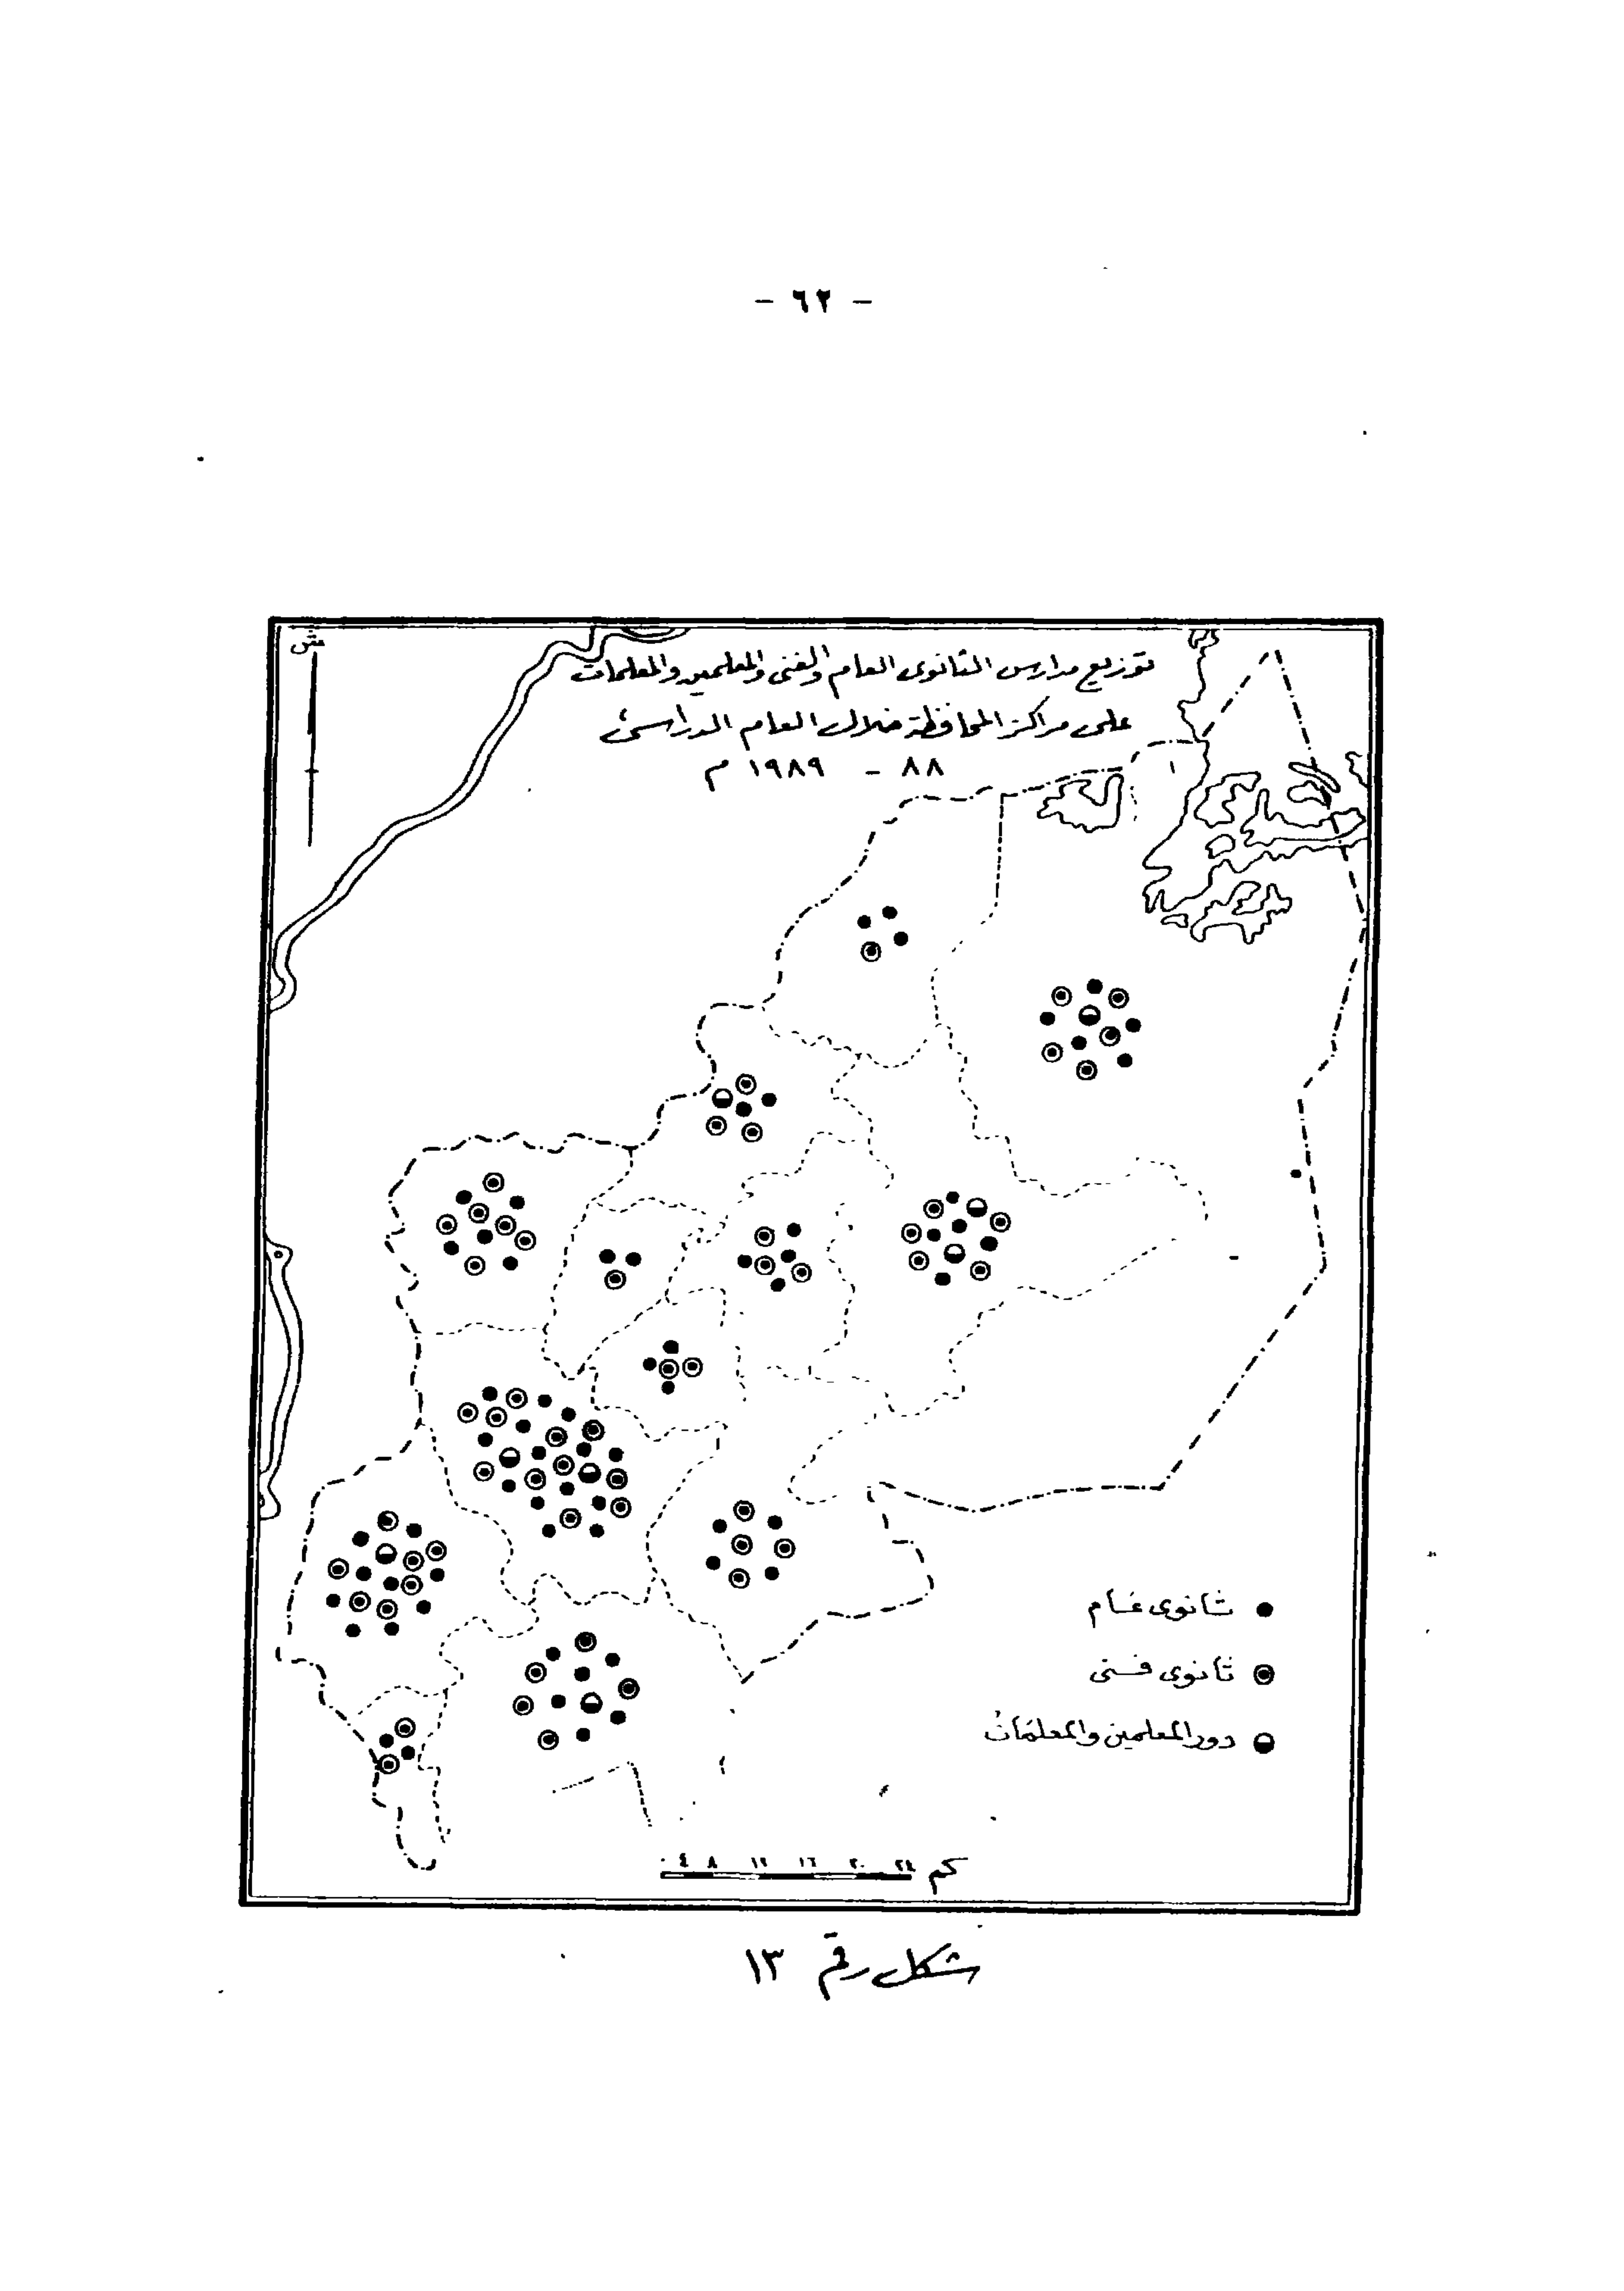 - ٦٢ -
ش
توزيع مدارس الثانوى العام والفنى والمعلمين والمعلمات
على مراكز المحافظة خلال العام الدراسى
٨٨ - ١٩٨٩ م
ثانوى عام
ثانوى فنى
دور المعلمين والمعلمات
٠ ٤ ٨ ١٢ ١٦ ٢٠ ٢٤ كم
شكل رقم ١٣